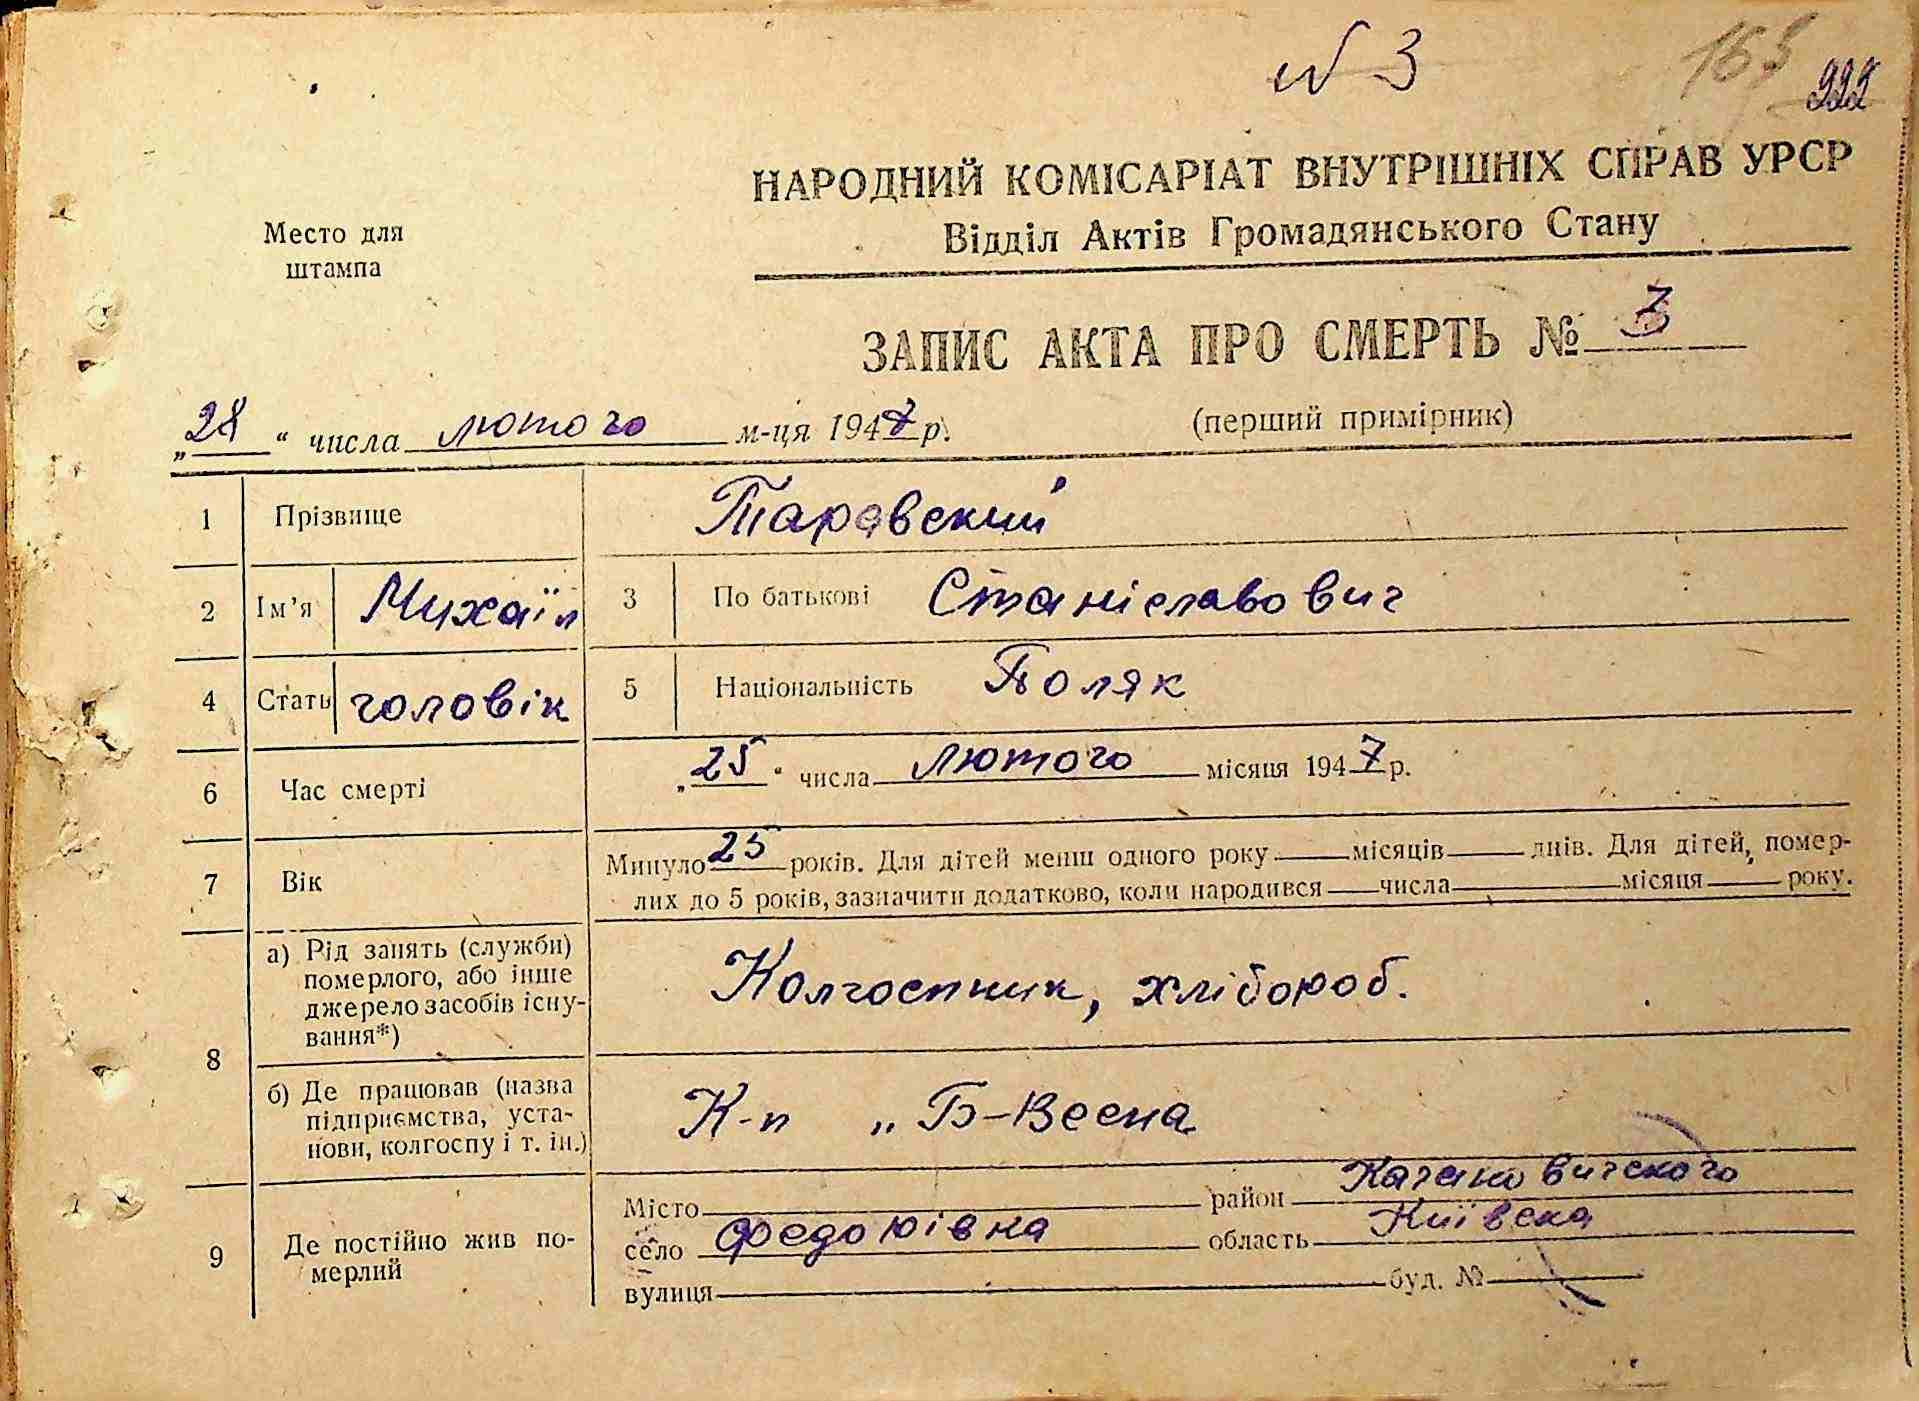 № 3
153
222
НАРОДНИЙ КОМІСАРІАТ ВНУТРІШНІХ СПРАВ УРСР
Відділ Актів Громадянського Стану
Место для
штампа
ЗАПИС АКТА ПРО СМЕРТЬ № 3
„28“ числа лютого м-ця 1947 р. (перший примірник)
1 Прізвище Таравский
2 Ім'я Михаїл 3 По батькові Станіславович
4 Стать чоловік 5 Національність Поляк
6 Час смерті „25“ числа лютого місяця 1947 р.
7 Вік Минуло 25 років. Для дітей менш одного року місяців днів. Для дітей, помер-
лих до 5 років, зазначити додатково, коли народився числа місяця року.
8 а) Рід занять (служби)
померлого, або інше
джерело засобів існу-
вання*) Колгоспник, хлібороб.
б) Де працював (назва
підприємства, уста-
нови, колгоспу і т. ін.) К-п „Б-Весна
9 Де постійно жив по-
мерлий
Місто район Кагановичского
село Федорівна область Київска
вулиця буд. №